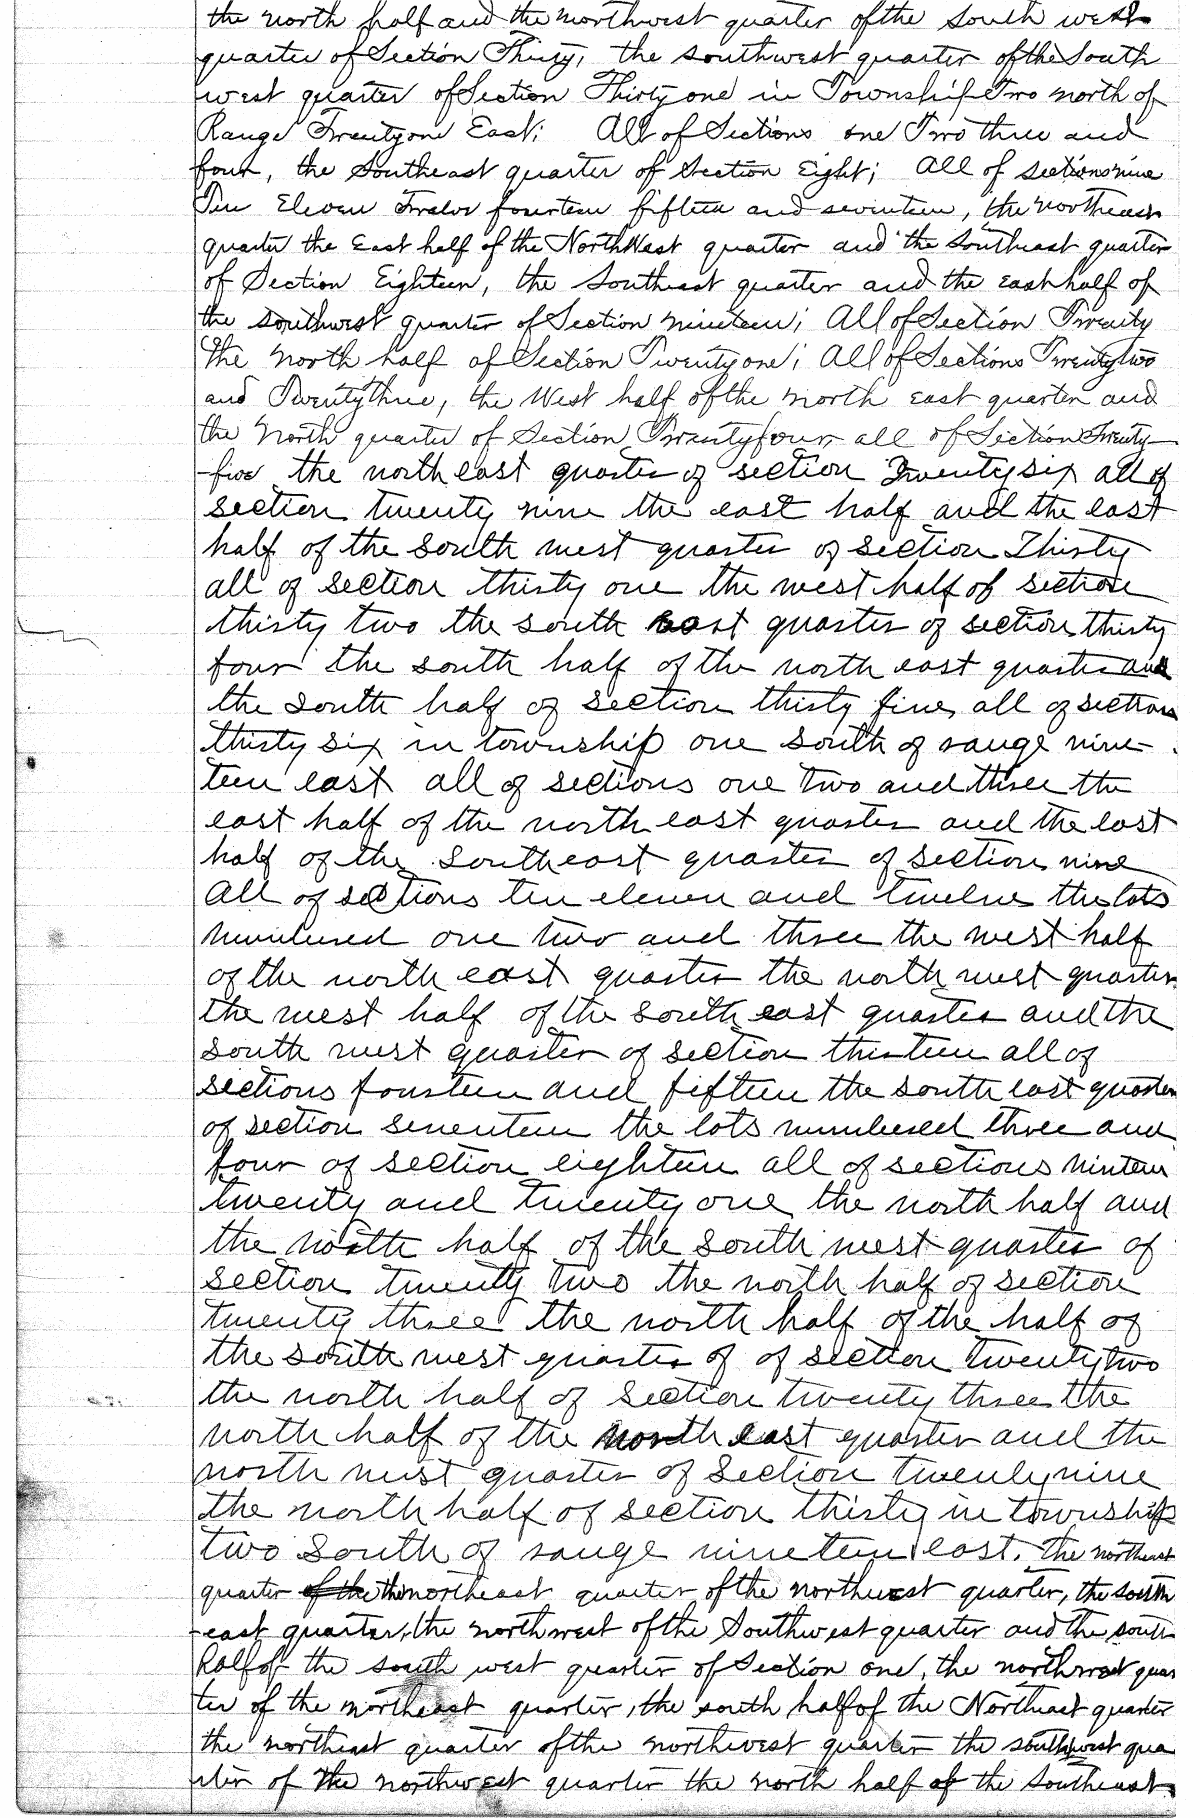 the north half and the northwest quarter of the South west
quarter of Section Thirty, the southwest quarter of the South
west quarter of Section Thirty one in Township Two north of
Range Twenty one East; All of Sections one Two three and
four, the Southeast quarter of Section Eight; All of sections nine
Ten Eleven Twelve fourteen fifteen and seventeen, the northeast
quarter the East half of the North West quarter and the Southeast quarter
of Section Eighteen, the Southeast quarter and the east half of
the southwest quarter of Section nineteen; All of Section Twenty
The north half of Section Twenty one; All of Sections Twenty two
and Twenty three, the West half of the north east quarter and
the North quarter of Section Twenty four all of Section Twenty
five the north east quarter of section Twenty six all of
section twenty nine the east half and the east
half of the south west quarter of section Thirty
all of section thirty one the west half of section
thirty two the south east quarter of section thirty
four the south half of the north east quarter and
the south half of section thirty five, all of section
thirty six in township one south of range nine-
teen east all of sections one two and three the
east half of the north east quarter and the east
half of the southeast quarter of section nine
All of sections ten eleven and twelve the lots
numbered one two and three the west half
of the north east quarter the north west quarter
the west half of the south east quarter and the
south west quarter of section thirteen all of
sections fourteen and fifteen the south east quarter
of section seventeen the lots numbered three and
four of section eighteen all of sections nineteen
twenty and twenty one the north half and
the north half of the south west quarter of
section twenty two the north half of section
twenty three the north half of the half of
the south west quarter of of section twenty two
the north half of section twenty three the
north half of the north east quarter and the
north west quarter of section twenty nine
the north half of section thirty in township
two south of range nineteen east. The northeast
quarter of the the northeast quarter of the northwest quarter, the south
east quarter, the northwest of the Southwest quarter and the south
half of the south west quarter of Section one, the northwest quar
ter of the northeast quarter, the south half of the Northeast quarter
the northeast quarter of the northwest quarter the southwest qua
rter of the northwest quarter the north half of the Southeast